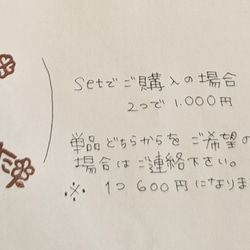 setでご購入の場合
2つで1.000円
単品どちらからをご希望の
場合はご連絡下さい。
※ 1つ600円になりま